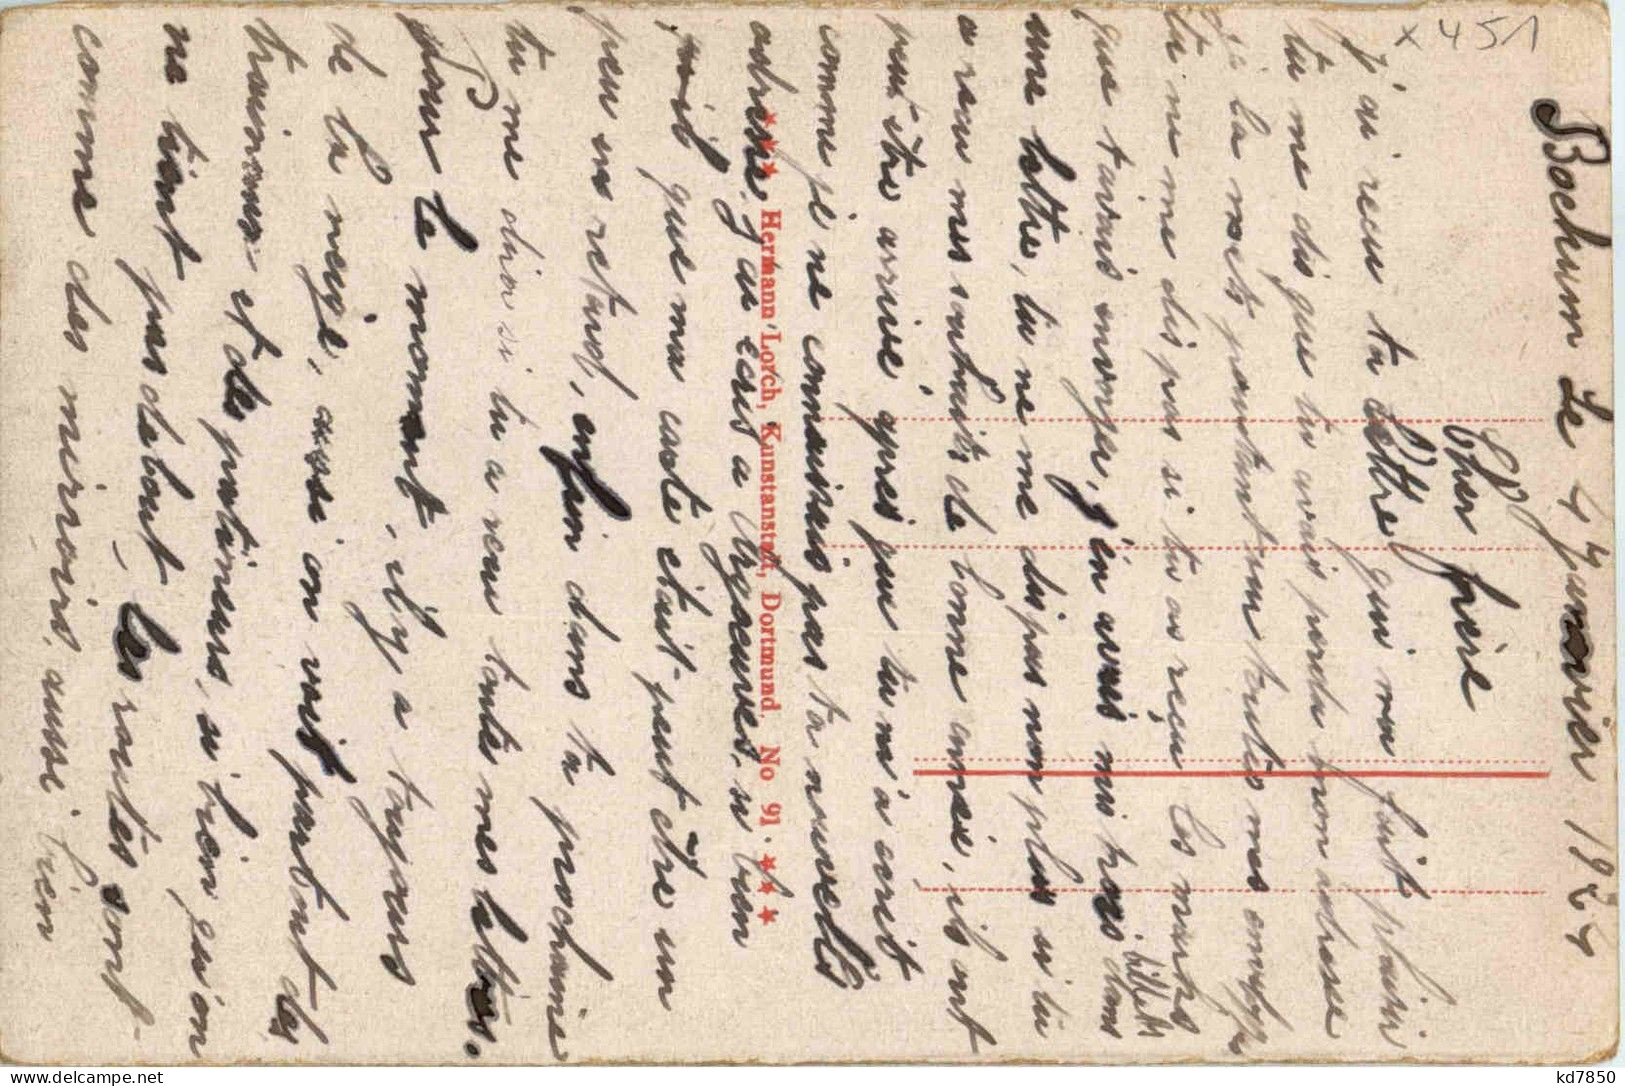 x 451
Bochum Le 4 Janvier 1924
Cher frère
J'ai recu ta lettre qui ma fait plaisir
tu me dis que tu avais perdu mon adresse
je la mets pourtant sur toutes mes
tu ne me dis pas si tu as reçu les marks
que tavais envoyer, j'en avais mis trois billets dans
une lettre, tu ne me dis pas non plus si tu
a recu mes souhaits de bonne année, ils ont
peut être arrivé apres que tu m'a écrit
comme je ne connaissais pas ta nouvelle
adresse j'ai ecris a so bien
que ma carte etait peut être un
peu en retard, enfin dans ta prochaine
tu me diras si tu a recu toute mes lettres.
Pour le moment, il y a toujours
de la neige, aussi on voit partout des
traineaux et des patineurs, si bien qu'on
ne tient pas debout, les routes sont
comme des miroirs, aussi bien
*** Hermann Lorch, Kunstanstalt, Dortmund. No 91. ***
kd7850